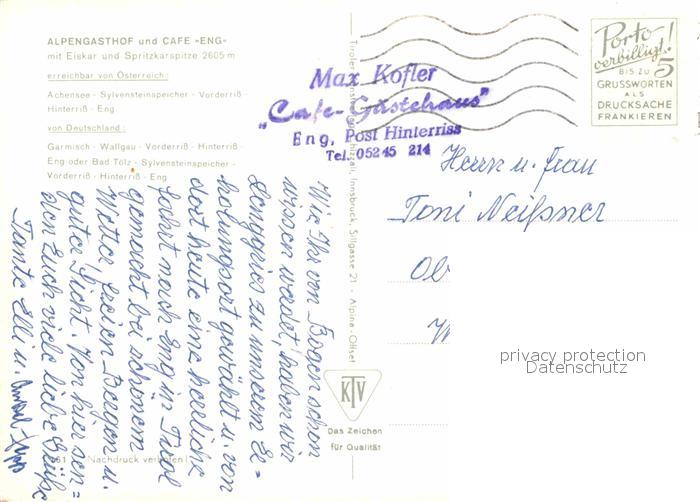 ALPENGASTHOF und CAFE »ENG«
mit Eiskar und Spritzkarspitze 2605 m
erreichbar von Österreich:
Achensee - Sylvensteinspeicher - Vorderriß -
Hinterriß - Eng
von Deutschland:
Garmisch - Wallgau - Vorderriß - Hinterriß -
Eng oder Bad Tölz - Sylvensteinspeicher -
Vorderriß - Hinterriß - Eng
Max Kofler
„Cafe-Gästehaus"
Eng, Post Hinterriss
Tel. 05245 214
Porto
verbilligt!
BIS ZU 5
GRUSSWORTEN
ALS
DRUCKSACHE
FRANKIEREN
Herrn u. Frau
Toni Neißner
Ob
W
privacy protection
Datenschutz
Wie Ihr von schon
wissen werdet, haben wir
Lenggries zu unserem Er=
holungsort gewählt u. von
dort heute eine herrliche
Fahrt nach Eng in Tirol
gemacht bei schönem
Wetter, freien Bergen u.
guter Sicht. Von hier sen=
den Euch viele liebe Grüße
Tante Elli u.
Innsbruck, Sillgasse 21 - Alpina-Offset
KTV
Das Zeichen
für Qualität
Nachdruck verboten!